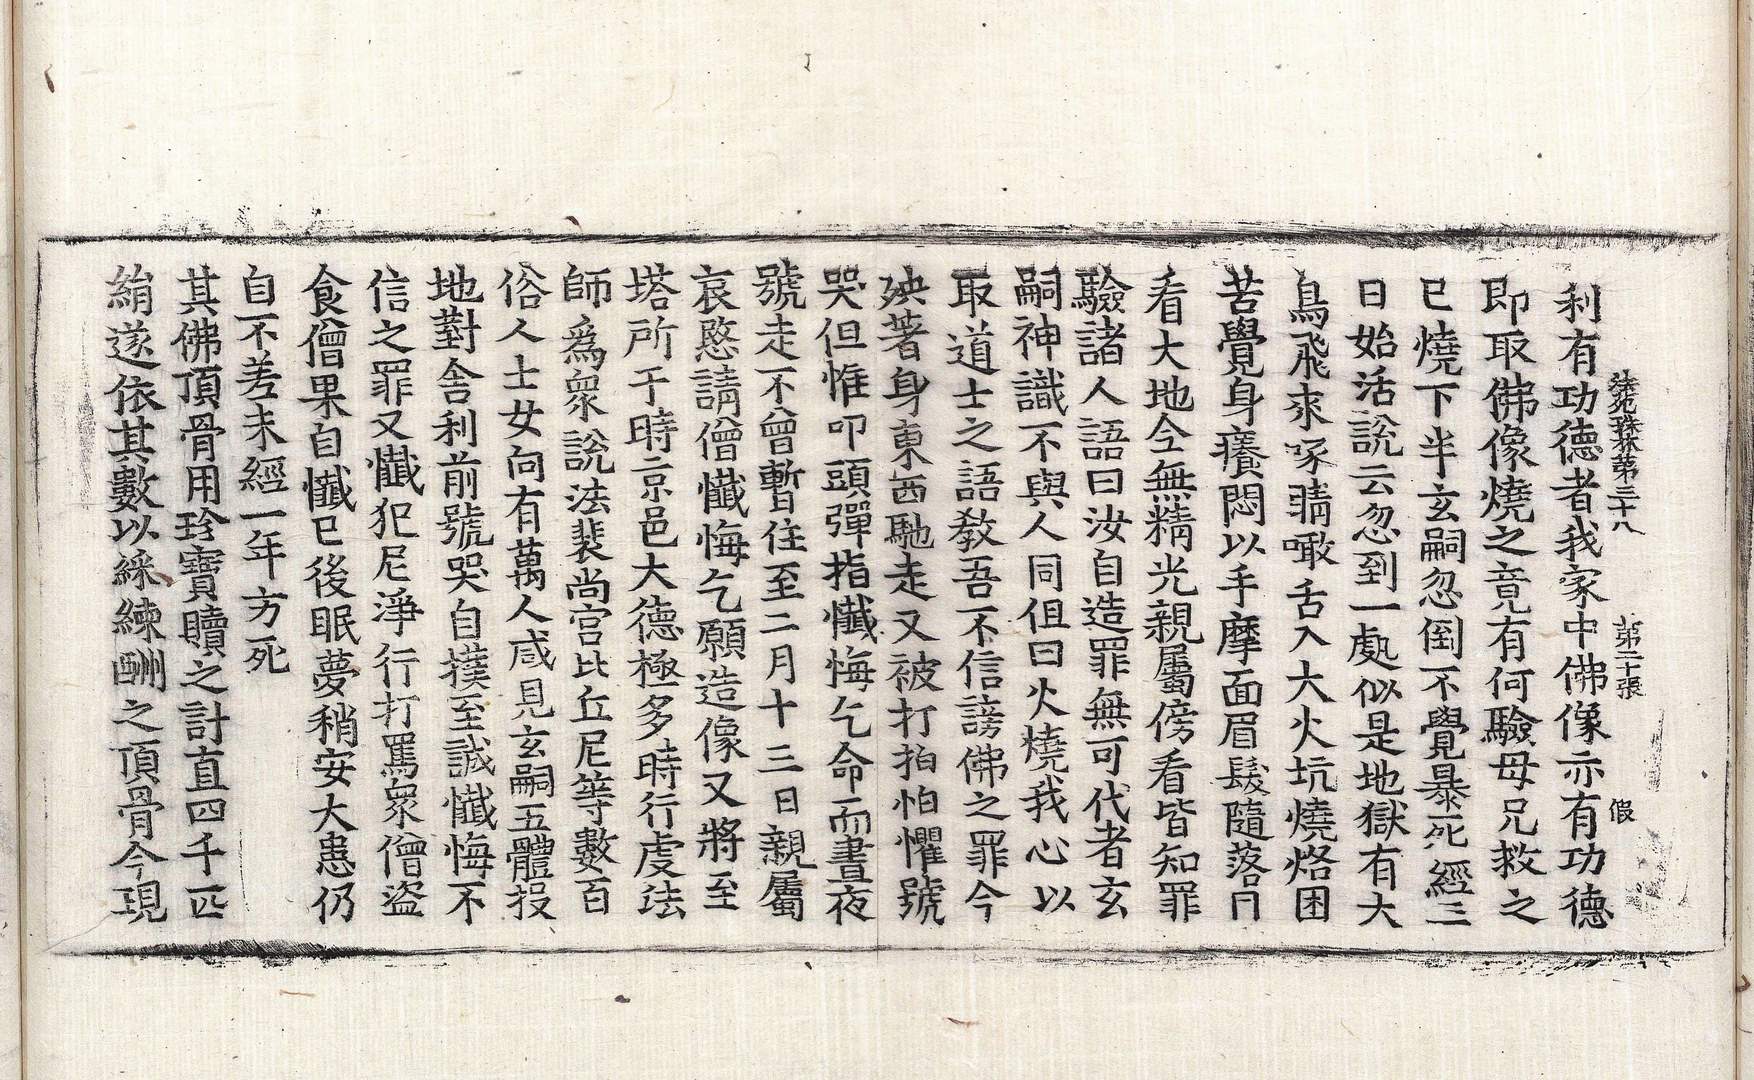 法苑珠林第三十八 第二十張 假
利有功德者我家中佛像亦有功德
即取佛像燒之竟有何驗母兄救之
已燒下半玄嗣忽倒不覺暴死經三
日始活說云忽到一處似是地獄有大
鳥飛來啄睛噉舌入大火坑燒烙困
苦覺身癢悶以手摩面眉髮隨落
看大地全無精光親屬傍看皆知罪
驗諸人語曰汝自造罪無可代者玄
嗣神識不與人同但曰火燒我心以
取道士之語教吾不信謗佛之罪今
殃著身東西馳走又被打拍怕懼號
哭但惟叩頭彈指懺悔乞命而晝夜
號走不曾暫住至二月十三日親屬
哀愍請僧懺悔乞願造像又將至
塔所于時京邑大德極多時行虔法
師爲衆說法裴尚宮比丘尼等數百
俗人士女向有萬人咸見玄嗣五體投
地對舍利前號哭自撲至誠懺悔不
信之罪又懺犯尼淨行打罵衆僧盜
食僧果自懺已後眠夢稍安大患仍
自不差未經一年方死
其佛頂骨用珍寶贖之計直四千匹
絹遂依其數以綵練酬之頂骨今現